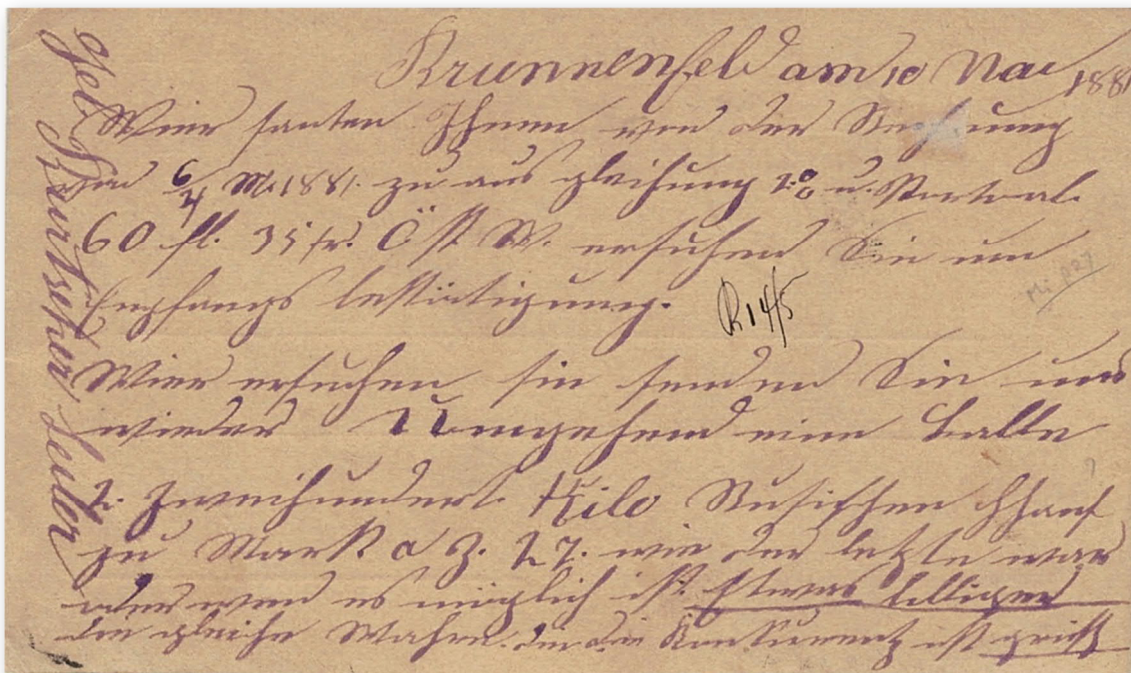 Krunnenfeld am 10 Mai 1881
Wier santen Ihnen von der Rechnung
von 6/4 M. 1881. zu aus gleichung 2% u.
60 fl. 35 kr. Öst. W. ersuchen Sie um
Empfangs bestätigung. R 14/5
Wier ersuchen sie senden Sie uns
wieder Umgehend eine Balle
2. Zweihundert Kilo Rusischen Hhanf
zu Mark a Z. 27. wie der letzte war
oder wen es möglich ist. Etwas billiger
die gleiche Wahre. den die Konkurentz ist groß
Seiler